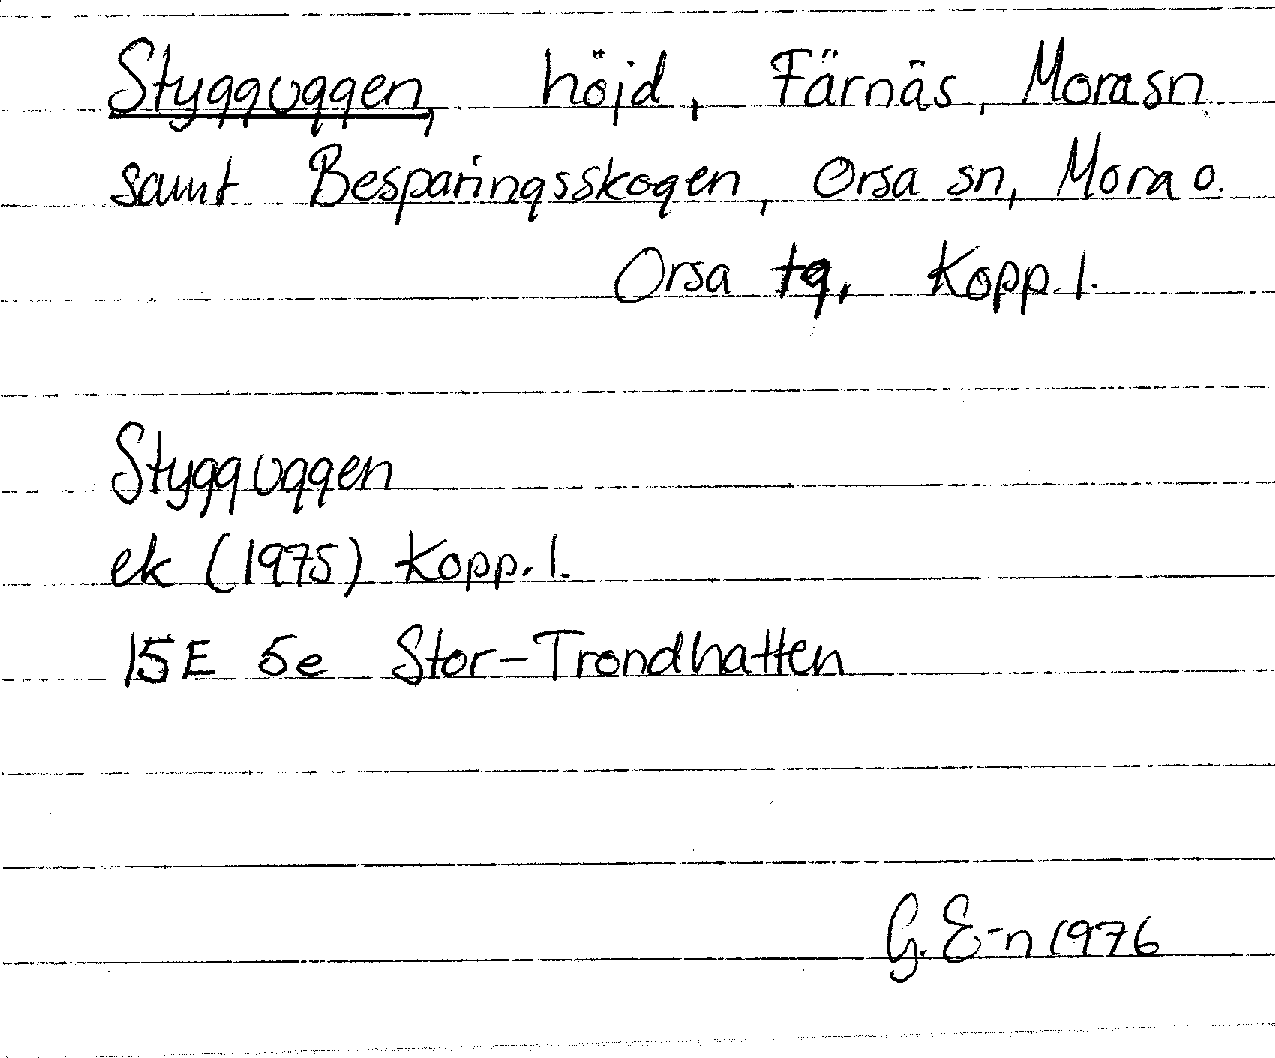 Stygguggen, höjd, Färnäs, Mora sn
samt Besparingsskogen, Orsa sn, Mora o.
Orsa tg, Kopp. l.
Stygguggen
ek (1975) Kopp. l.
15E 5e Stor-Trondhatten
G. E-n 1976